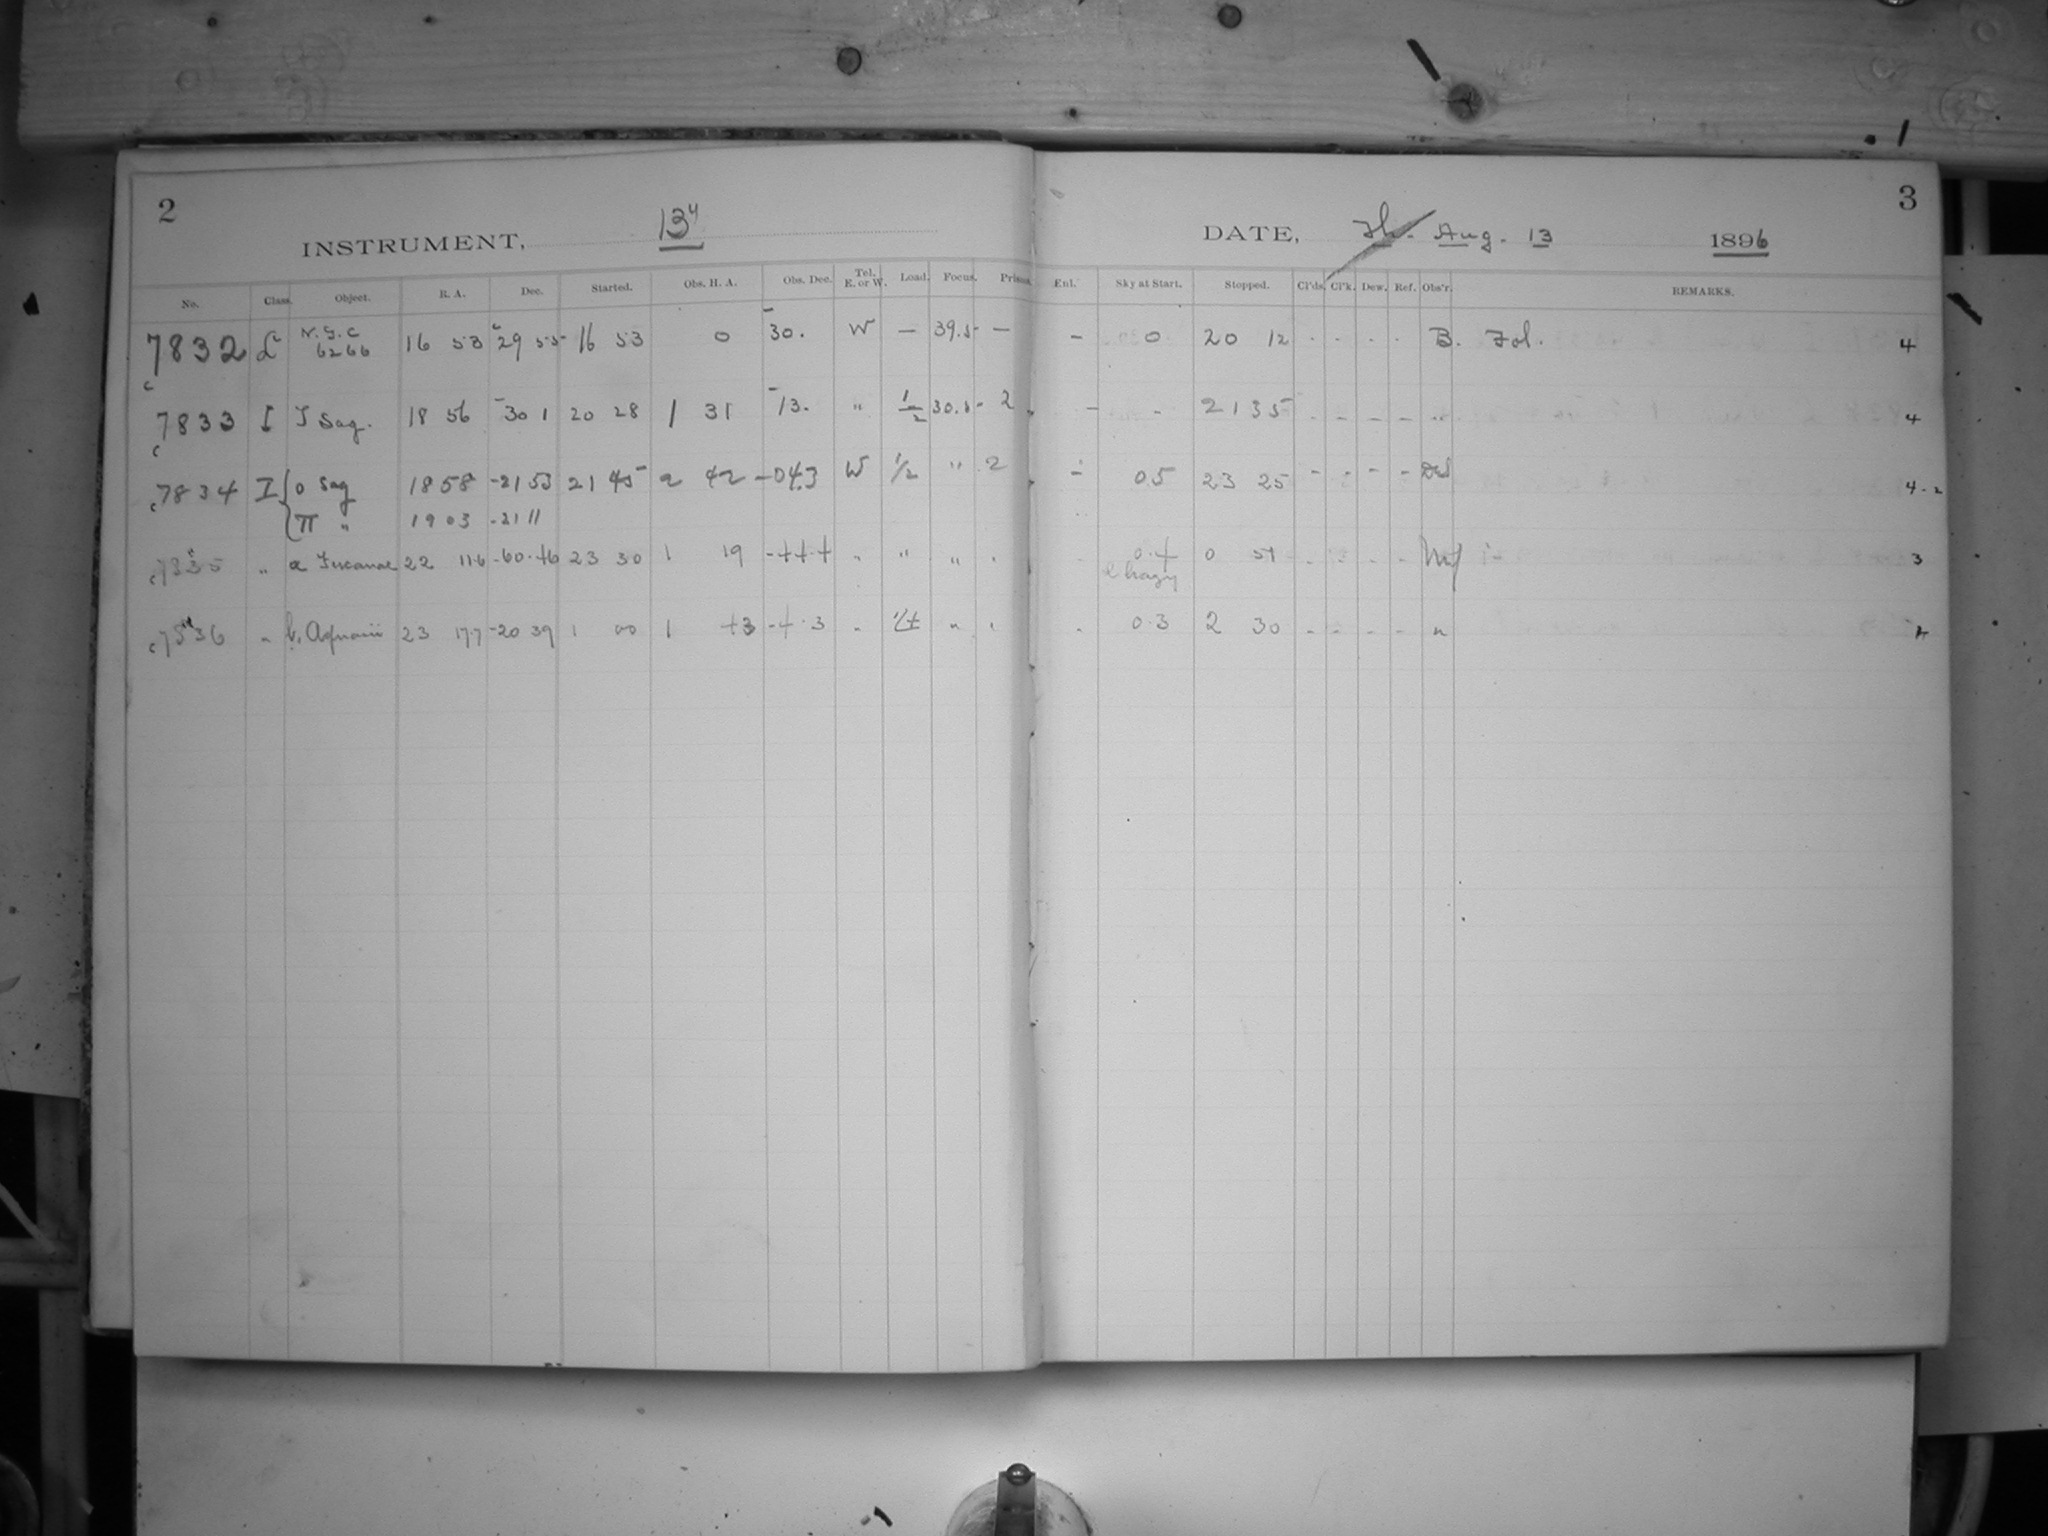 2
3
INSTRUMENT, 13"
DATE, Th. Aug. 13 1896
No. Class. Object. R. A. Dec. Started. Obs. H. A. Obs. Dec. Tel. E. or W. Load. Focus. Prisms. Enl. Sky at Start. Stopped. Cl'ds. Cl'k. Dew. Ref. Obs'r. REMARKS.
7832 N.G.C 6266 16 53 -29 55 16 53 0 -30. W — 39.5 — - 0 20 12 . . . . B. Fol. 4
c 7833 I Sag. 18 56 -30 1 20 28 1 31 -13. " 1/2 30.5 2 - - 21 35 - - - - " 4
c 7834 I { o Sag 18 58 -21 53 21 45 2 42 -043 W 1/2 " 2 - 05 23 25 - - - - 4-2
{ π " 19 03 -21 11
c 7835 " α Tucanae 22 11.6 -60.46 23 30 1 19 -44.4 " " " " 0.4 0 51 - - - - 3
hazy
c 7836 " b, Aquarii 23 17.7 -20 39 1 00 1 43 -4.3 " 1/4 " " 0.3 2 30 - - - - "